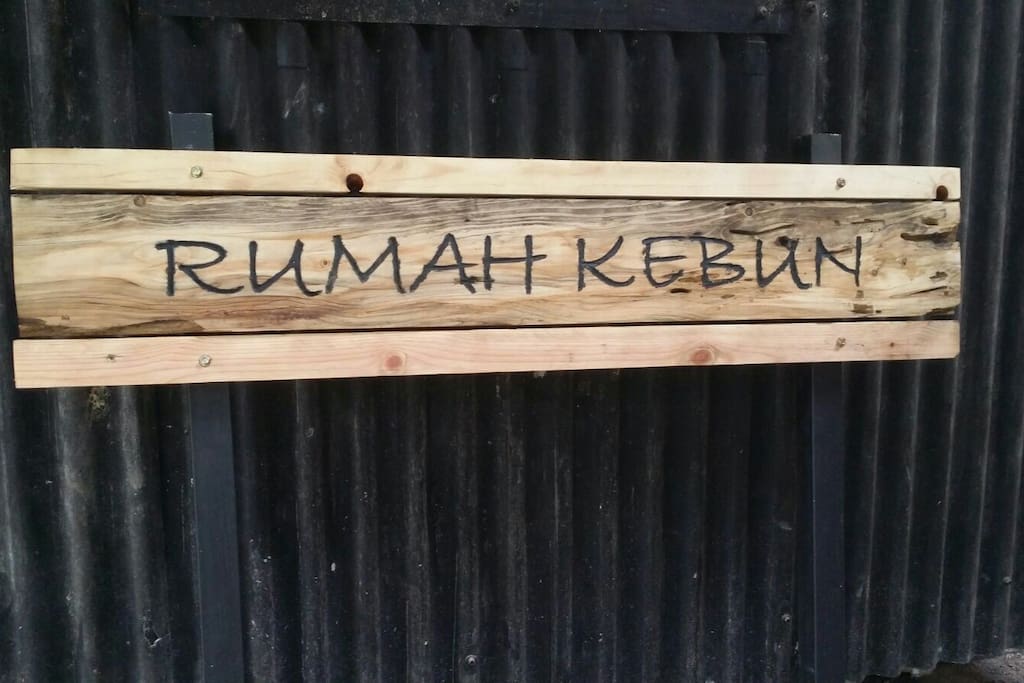 RUMAH KEBUN